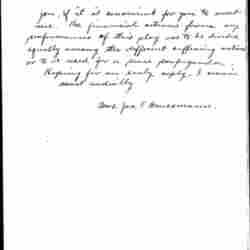 you, if it is convenient for you to meet
me. The financial returns from any
performances of this play are to be divided
equally among the different suffering nations
or to be used for a peace propaganda.
Hoping for an early reply, I remain
most cordially
Mrs. Jas. E.